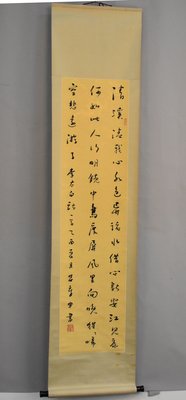 清溪清我心水色異諸水借問新安江見底
何如此人行明鏡中鳥度屏風里向晚猩猩啼
空悲遠遊子 李太白詩 書